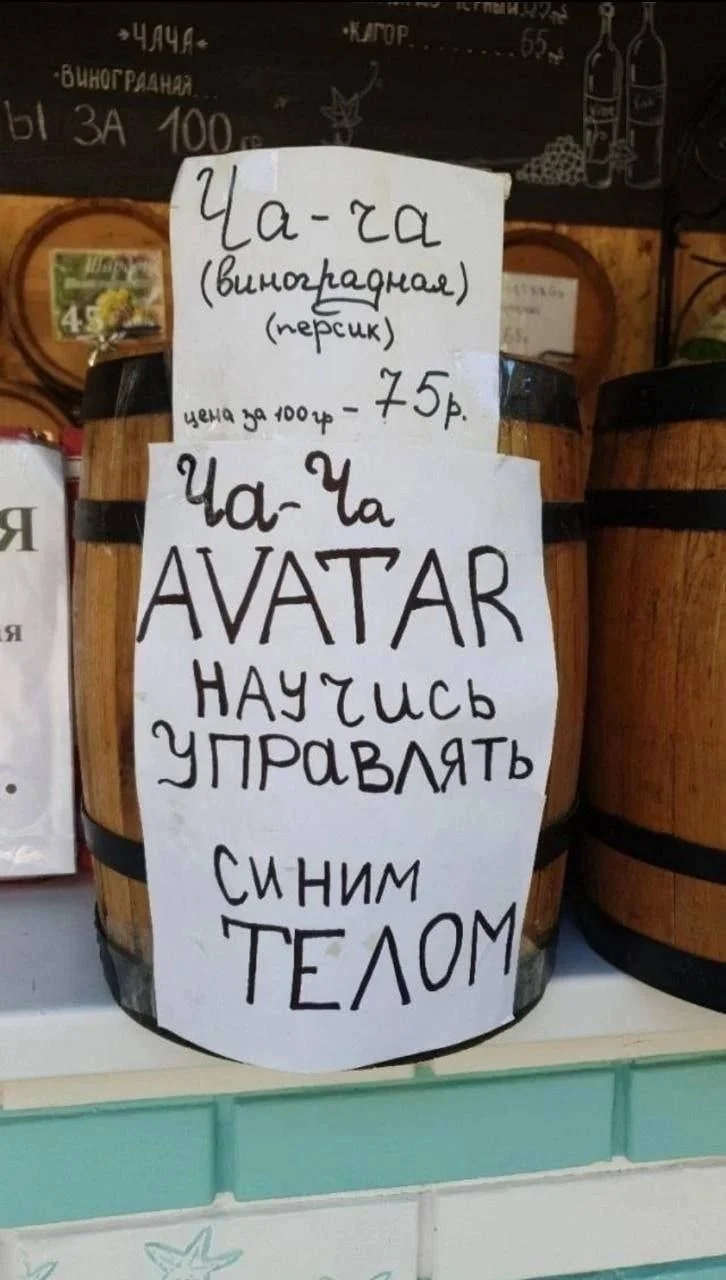 •ЧАЧА•
•ВИНОГРАДНАЯ...
•КАГОР.........65
Ы ЗА 100 гр
Ча-ча
(виноградная)
(персик)
цена за 100гр – 75р.
45
Ча-Ча
AVATAR
НАУЧИСЬ
УПРАВЛЯТЬ
СИНИМ
ТЕЛОМ
Я
я